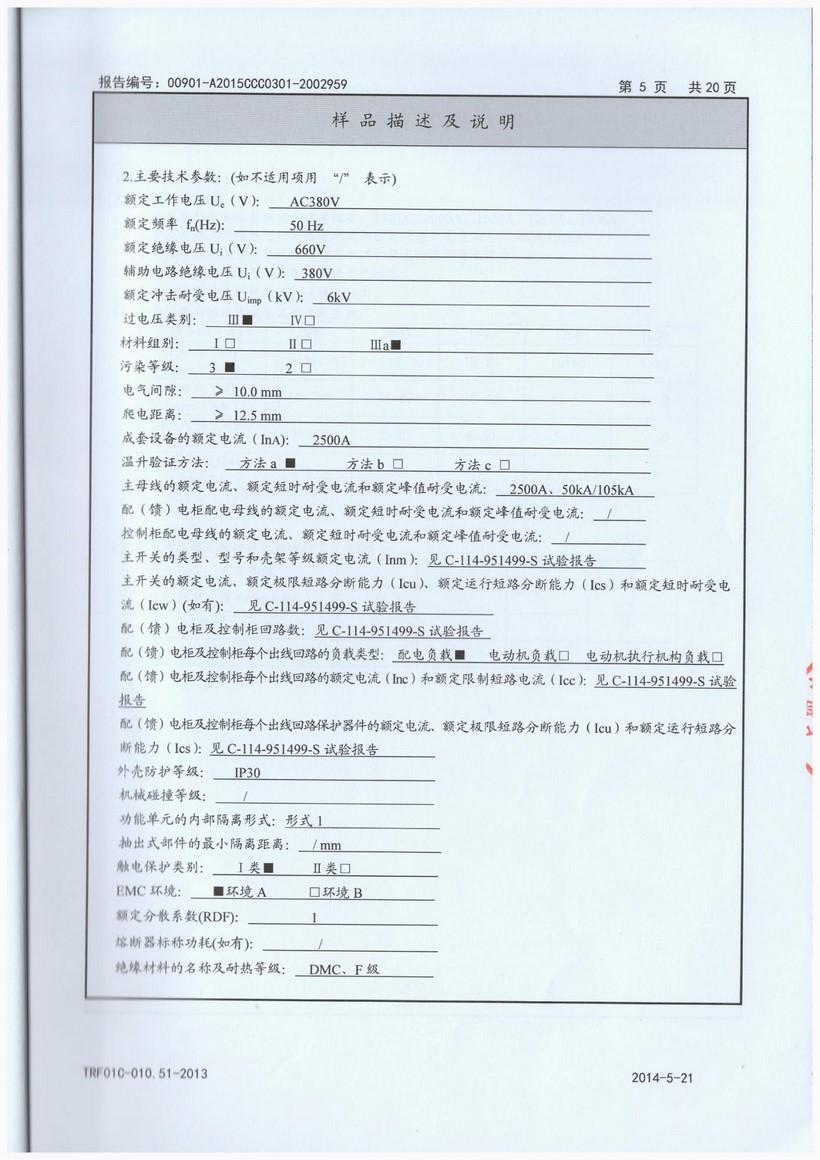 报告编号：00901-A2015CCC0301-2002959 第 5 页 共20页
样品描述及说明
2.主要技术参数：(如不适用项用 “/” 表示)
额定工作电压 Ue（V）： AC380V
额定频率 fn(Hz): 50 Hz
额定绝缘电压 Ui（V）： 660V
辅助电路绝缘电压 Ui（V）： 380V
额定冲击耐受电压 Uimp（kV）： 6kV
过电压类别： Ⅲ■ Ⅳ□
材料组别： Ⅰ□ Ⅱ□ Ⅲa■
污染等级： 3 ■ 2 □
电气间隙： ≥ 10.0 mm
爬电距离： ≥ 12.5 mm
成套设备的额定电流（InA）： 2500A
温升验证方法： 方法 a ■ 方法 b □ 方法 c □
主母线的额定电流、额定短时耐受电流和额定峰值耐受电流： 2500A、50kA/105kA
配（馈）电柜配电母线的额定电流、额定短时耐受电流和额定峰值耐受电流： /
控制柜配电母线的额定电流、额定短时耐受电流和额定峰值耐受电流： /
主开关的类型、型号和壳架等级额定电流（Inm）：见 C-114-951499-S 试验报告
主开关的额定电流、额定极限短路分断能力（Icu）、额定运行短路分断能力（Ics）和额定短时耐受电
流（Icw）(如有)： 见 C-114-951499-S 试验报告
配（馈）电柜及控制柜回路数：见 C-114-951499-S 试验报告
配（馈）电柜及控制柜每个出线回路的负载类型： 配电负载■ 电动机负载□ 电动机执行机构负载□
配（馈）电柜及控制柜每个出线回路的额定电流（Inc）和额定限制短路电流（Icc）：见 C-114-951499-S 试验
报告
配（馈）电柜及控制柜每个出线回路保护器件的额定电流、额定极限短路分断能力（Icu）和额定运行短路分
断能力（Ics）：见 C-114-951499-S 试验报告
外壳防护等级： IP30
机械碰撞等级： /
功能单元的内部隔离形式：形式 1
抽出式部件的最小隔离距离： / mm
触电保护类别： Ⅰ类■ Ⅱ类□
EMC 环境： ■环境 A □环境 B
额定分散系数(RDF)： 1
熔断器标称功耗(如有)： /
绝缘材料的名称及耐热等级： DMC、F 级
TRF01C-010.51-2013 2014-5-21